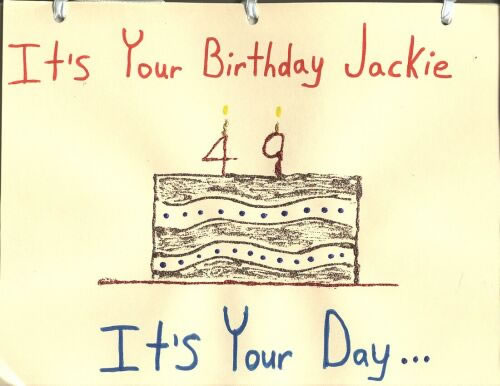 It's Your Birthday Jackie
49
It's Your Day...